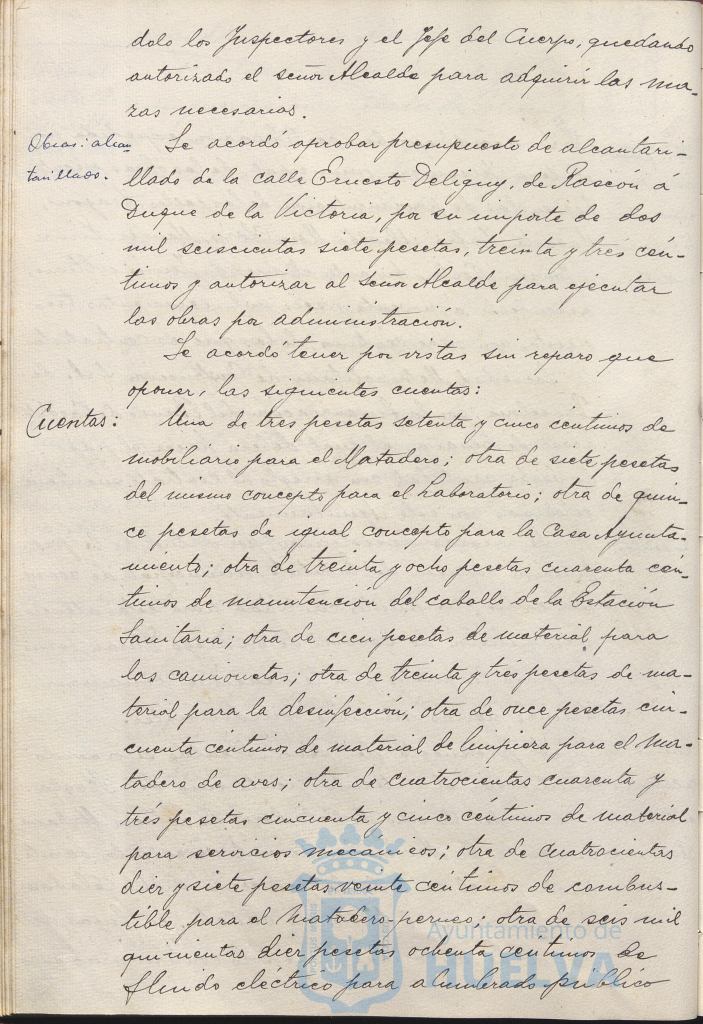 dolo los Inspectores y el Jefe del Cuerpo, quedando
autorizado el señor Alcalde para adquirir las ma-
zas necesarias.
Obras: alcan-
tarillado.
Se acordó aprobar presupuesto de alcantari-
llado de la calle Ernesto Deligny, de Rascón á
Duque de la Victoria, por su importe de dos
mil seiscientas siete pesetas, treinta y tres cén-
timos y autorizar al señor Alcalde para ejecutar
las obras por administración.
Se acordó tener por vistas sin reparo que
oponer, las siguientes cuentas:
Cuentas:
Una de tres pesetas setenta y cinco céntimos de
mobiliario para el Matadero; otra de siete pesetas
del mismo concepto para el Laboratorio; otra de quin-
ce pesetas de igual concepto para la Casa Ayunta-
miento; otra de treinta y ocho pesetas cuarenta cén-
timos de manutención del caballo de la Estación
Sanitaria; otra de cien pesetas de material para
las camionetas; otra de treinta y tres pesetas de ma-
terial para la desinfección; otra de once pesetas cin-
cuenta céntimos de material de limpieza para el Ma-
tadero de aves; otra de cuatrocientas cuarenta y
trés pesetas cincuenta y cinco céntimos de material
para servicios mecánicos; otra de cuatrocientas
diez y siete pesetas veinte céntimos de combus-
tible para el Matadero-perneo; otra de seis mil
quinientas diez pesetas ochenta céntimos de
fluido eléctrico para alumbrado público
Ayuntamiento de
HUELVA